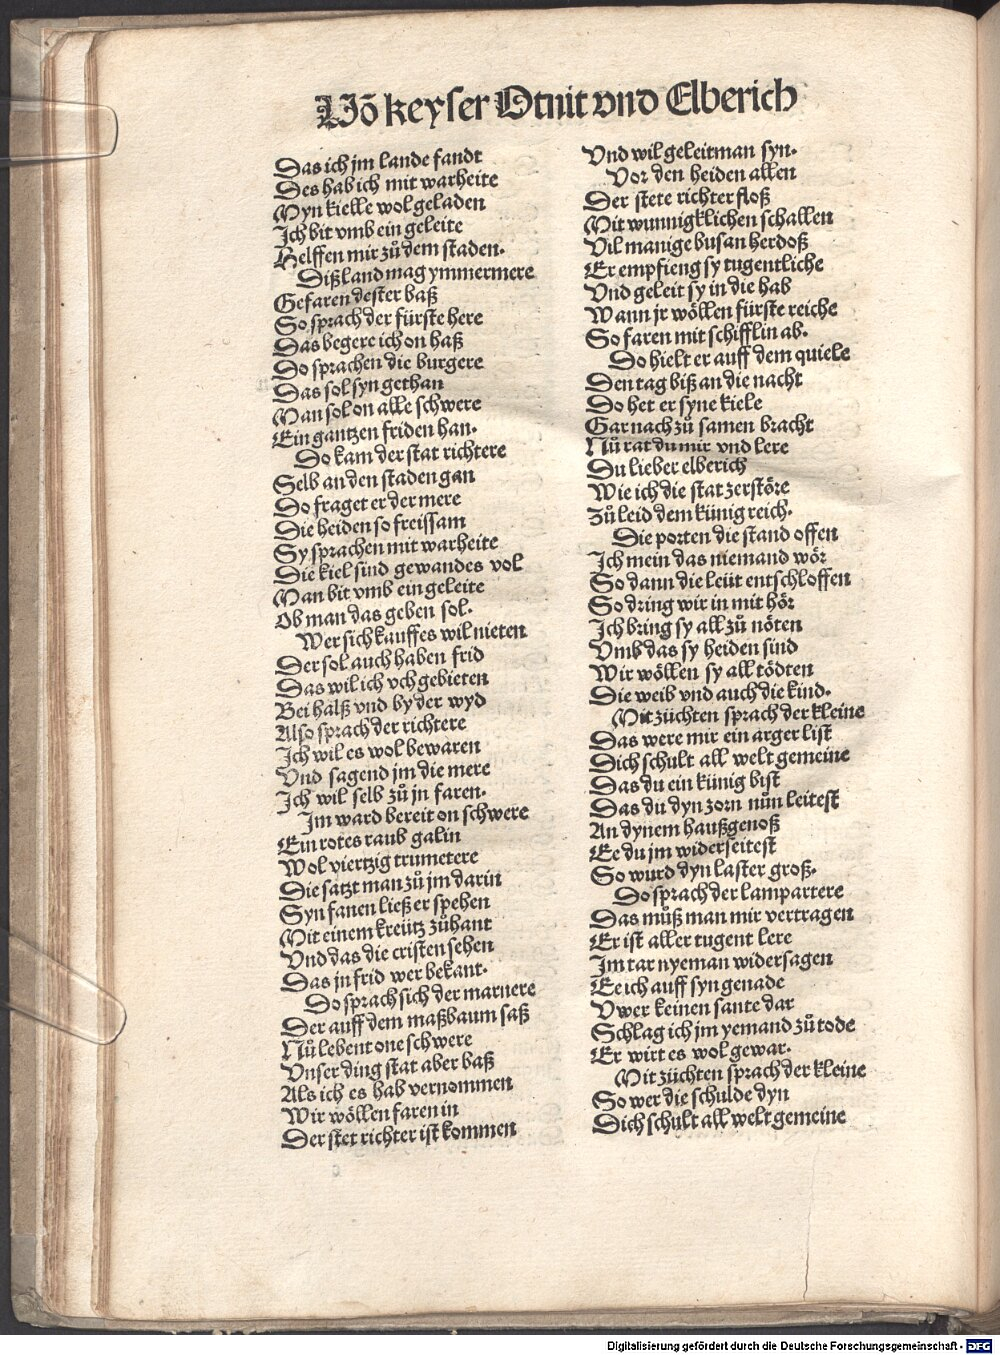 Uõ keyser Otnit vnd Elberich
Das ich jm lande fandt
Des hab ich mit warheite
Myn kielle wol geladen
Ich bit vmb ein geleite
Helffen mir zů dem staden.
Dißland mag ymmermere
Gefaren dester baß
So sprach der fürste here
Das begere ich on haß
Do sprachen die burgere
Das sol syn gethan
Man sol on alle schwere
Ein gantzen friden han.
Do kam der stat richtere
Selb an den staden gan
Do fraget er der mere
Die heiden so freissam
Sy sprachen mit warheite
Die kiel sind gewandes vol
Man bit vmb ein geleite
Ob man das geben sol.
Wer sich kauffes wil nieten
Der sol auch haben frid
Das wil ich vch gebieten
Bei halß vnd by der wyd
Also sprach der richtere
Ich wil es wol bewaren
Vnd sagend jm die mere
Ich wil selb zů jn faren.
Im ward bereit on schwere
Ein rotes raub galin
Wol viertzig trumetere
Die satzt man zů jm darin
Syn fanen ließ er spehen
Mit einem kreütz zůhant
Vnd das die cristen sehen
Das jn frid wer bekant.
Do sprach sich der marnere
Der auff dem maßbaum saß
Nů lebent one schwere
Vnser ding stat aber baß
Als ich es hab vernommen
Wir wöllen faren in
Der stet richter ist kommen
Vnd wil geleitman syn.
Vor den heiden allen
Der stete richter floß
Mit wunnigklichen schallen
Vil manige busan herdoß
Er empfieng sy tugentliche
Vnd geleit sy in die hab
Wann jr wöllen fürste reiche
So faren mit schifflin ab.
Do hielt er auff dem quiele
Den tag biß an die nacht
Do het er syne kiele
Gar nach zů samen bracht
Nů rat du mir vnd lere
Du lieber elberich
Wie ich die stat zerstöre
Zů leid dem künig reich.
Die porten die stand offen
Ich mein das niemand wör
So dann die leüt entschloffen
So dring wir in mit hör
Ich bring sy all zů nöten
Vmb das sy heiden sind
Wir wöllen sy all tödten
Die weib vnd auch die kind.
Mit züchten sprach der kleine
Das were mir ein arger list
Dich schult all welt gemeine
Das du ein künig bist
Das du dyn zorn nun leitest
An dynem haußgenoß
Ee du jm widerseitest
So wurd dyn laster groß.
Do sprach der lampartere
Das můß man mir vertragen
Er ist aller tugent lere
Im tar nyeman widersagen
Ee ich auff syn genade
Vwer keinen sante dar
Schlag ich jm yemand zů tode
Er wirt es wol gewar.
Mit züchten sprach der kleine
So wer die schulde dyn
Dich schult all welt gemeine
Digitalisierung gefördert durch die Deutsche Forschungsgemeinschaft - DFG